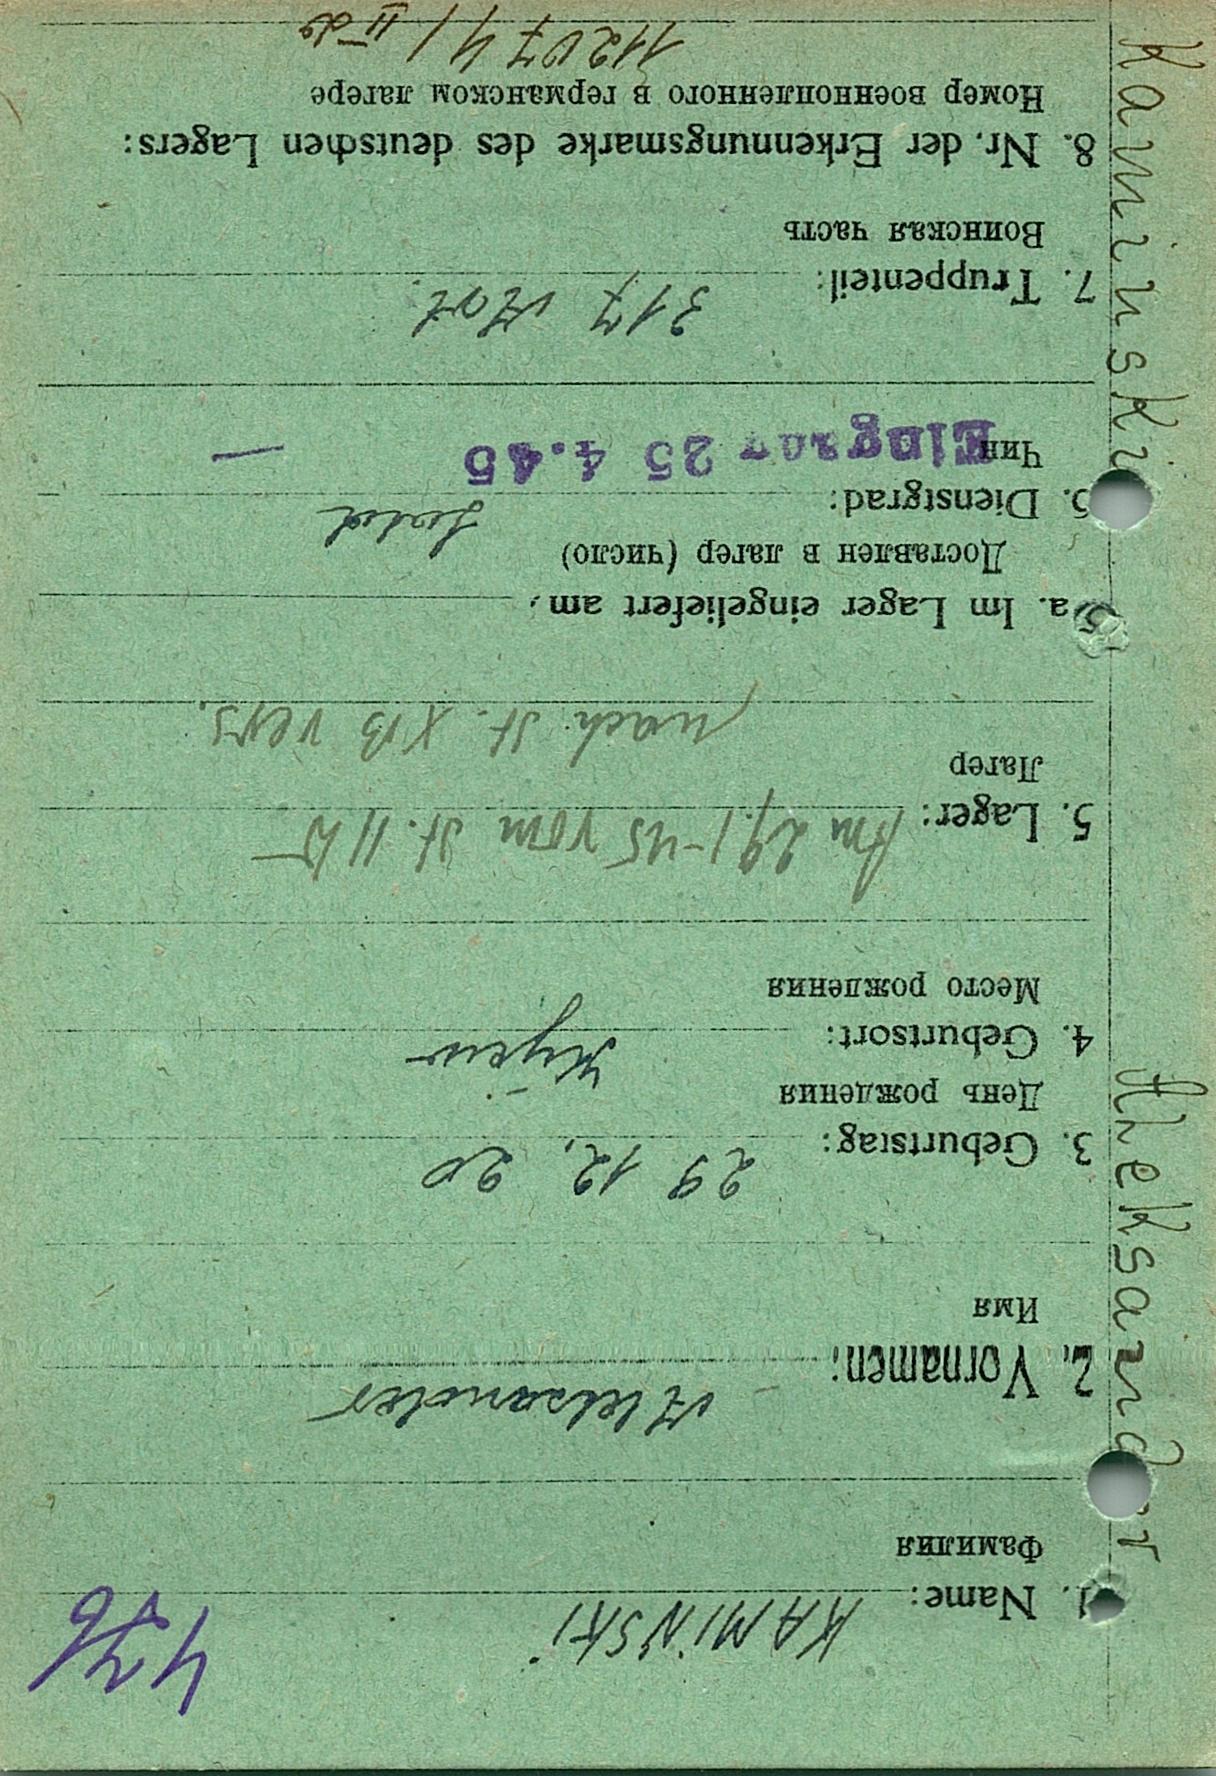 476
1. Name: KAMIŃSKI
Фамилия
2. Vornamen: Aleksander
Имя
3. Geburtstag: 29 12. 20
День рождения
4. Geburtsort: Kijew
Место рождения
5. Lager: Am 29.1-45 vom St. II B
Лагер
nach St. XB vers.
5a. Im Lager eingeliefert am:
Доставлен в лагер (число)
6. Dienstgrad: Sold
Чин Eingang 25 4.45 —
7. Truppenteil: 317
Воинская часть
8. Nr. der Erkennungsmarke des deutschen Lagers:
Номер военнопленного в германском лагере
112074 /
Kaminski Aleksander